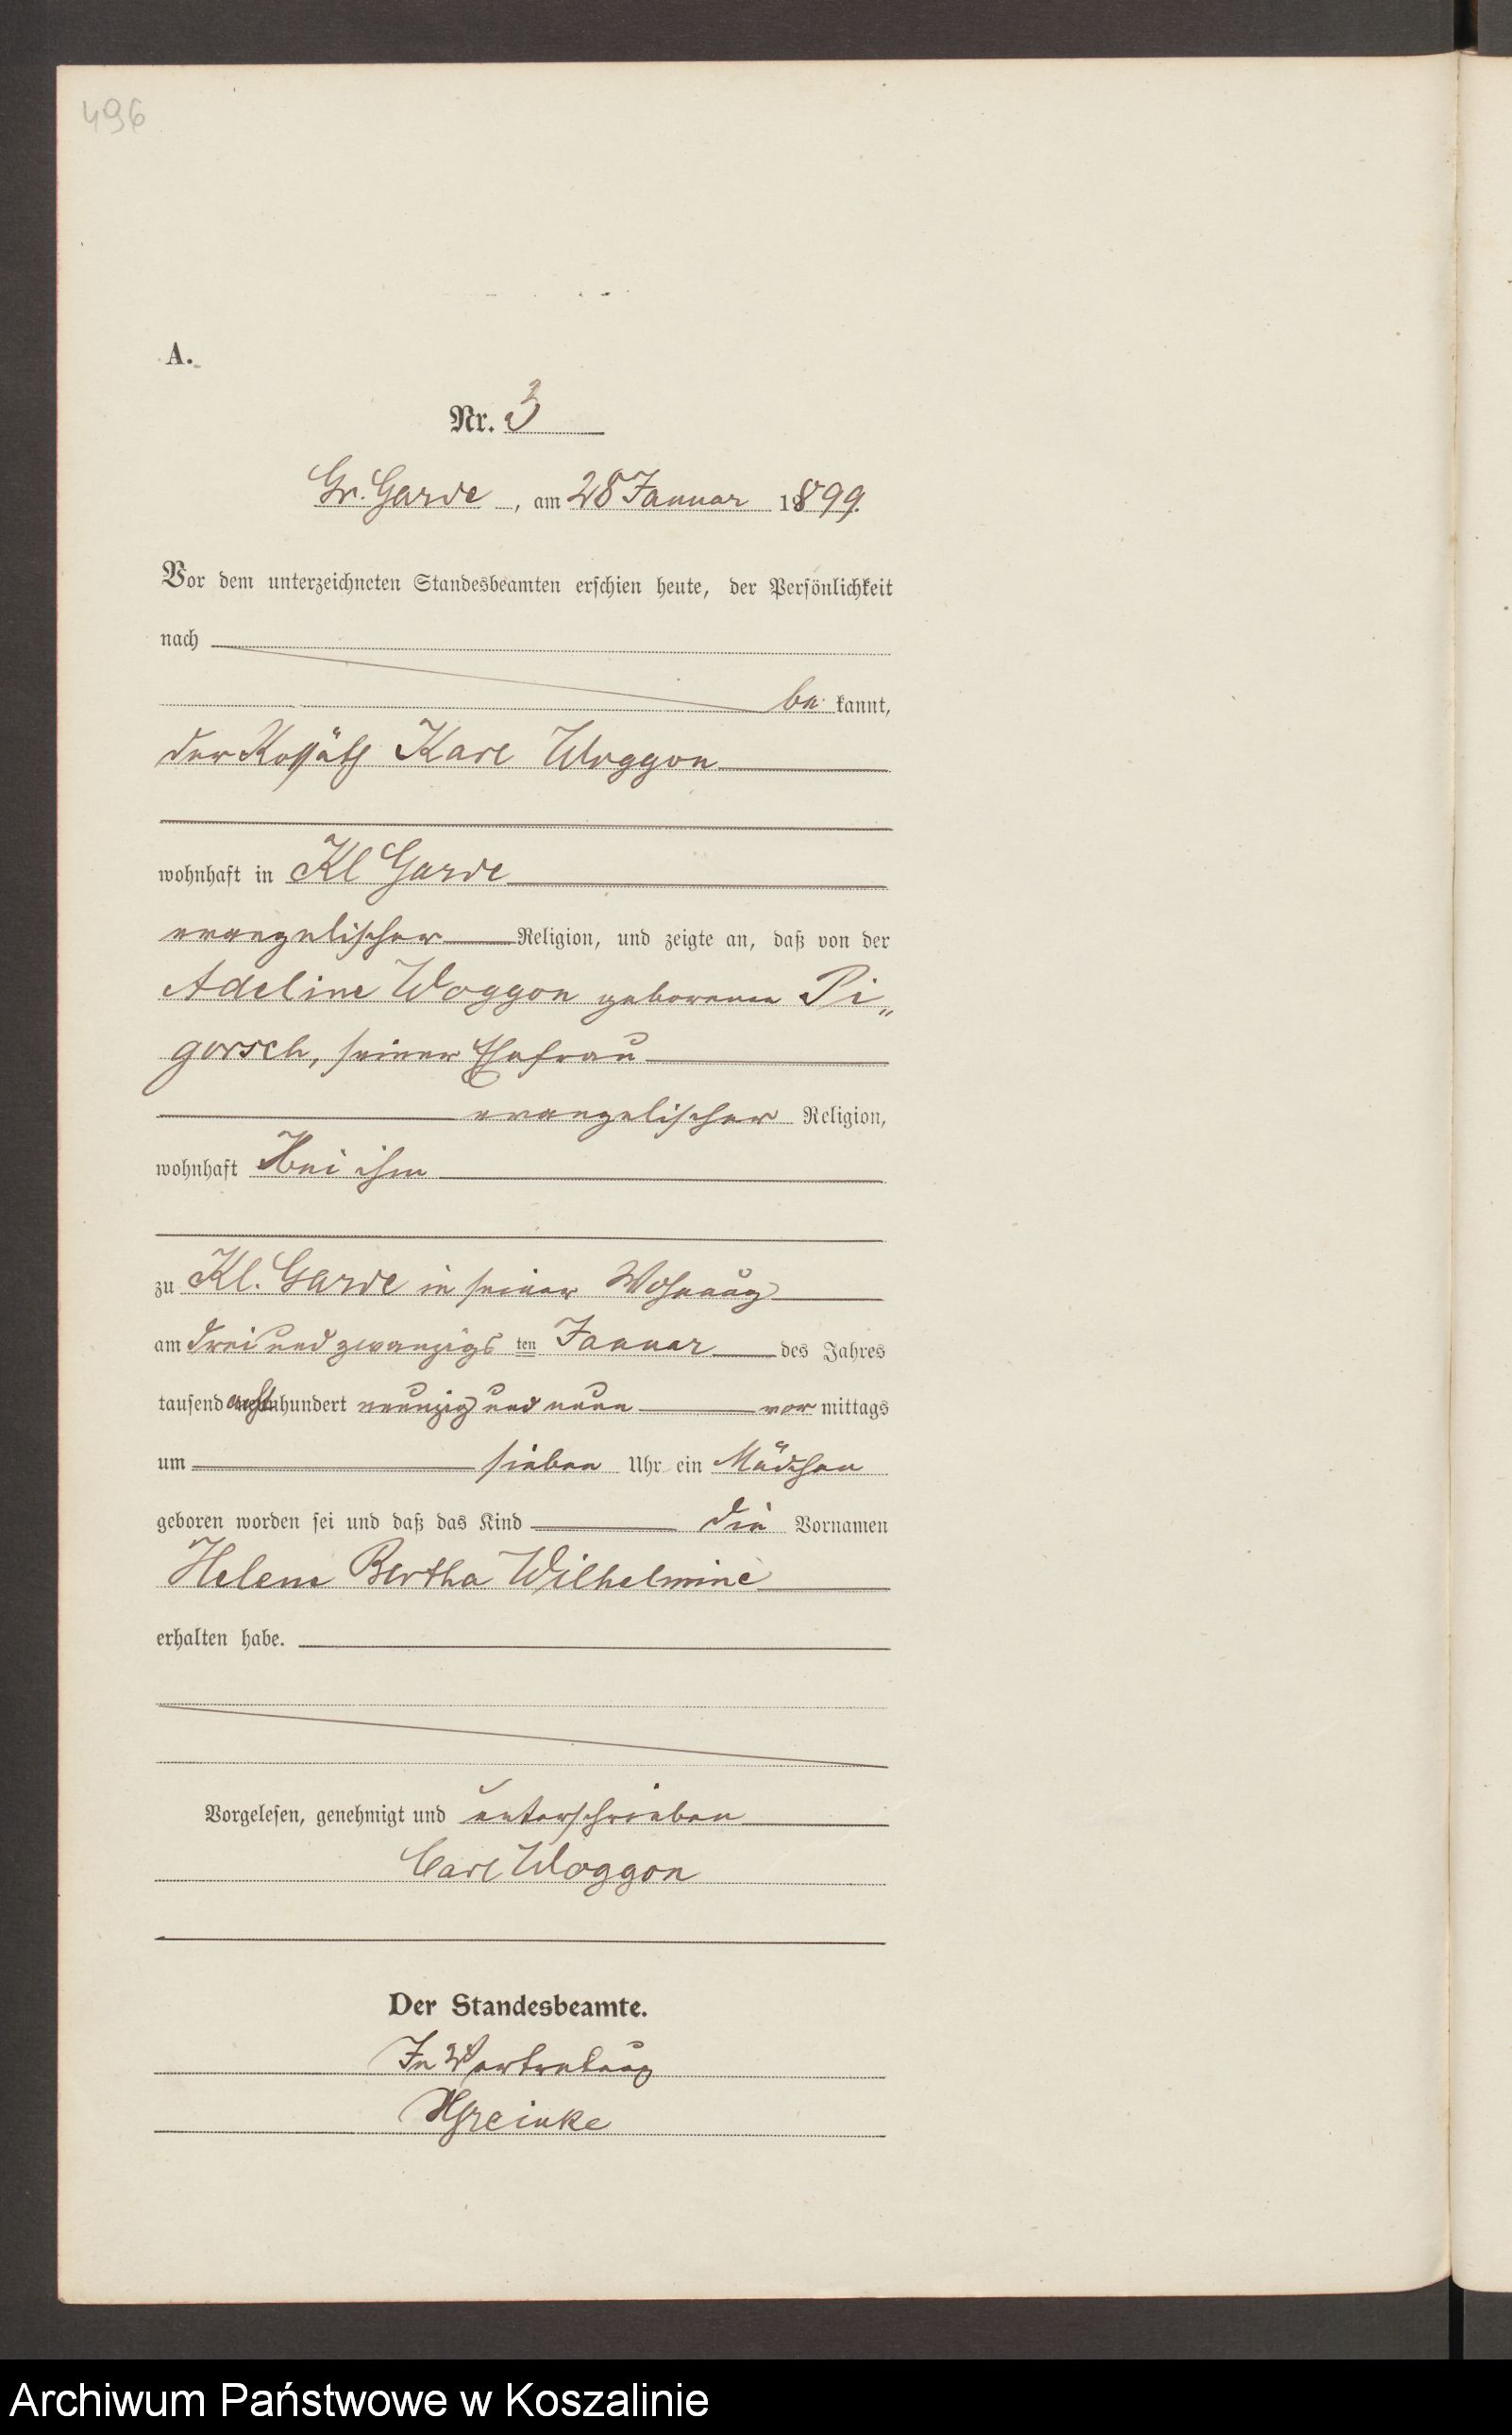 496
A.
Nr. 3
Gr. Garde, am 28 Januar 1899.
Vor dem unterzeichneten Standesbeamten erschien heute, der Persönlichkeit
nach
be kannt,
der Kossäth Karl Woggon
wohnhaft in Kl Garde
evangelischer Religion, und zeigte an, daß von der
Adeline Woggon geborenen Pi„
gorsch, seiner Ehefrau
evangelischer Religion,
wohnhaft bei ihm
zu Kl. Garde in seiner Wohnung
am drei und zwanzigs ten Januar des Jahres
tausend acht hundert neunzig und neun vor mittags
um sieben Uhr ein Mädchen
geboren worden sei und daß das Kind die Vornamen
Helene Bertha Wilhelmine
erhalten habe.
Vorgelesen, genehmigt und unterschrieben
Carl Woggon
Der Standesbeamte.
In Vertretung
Archiwum Państwowe w Koszalinie